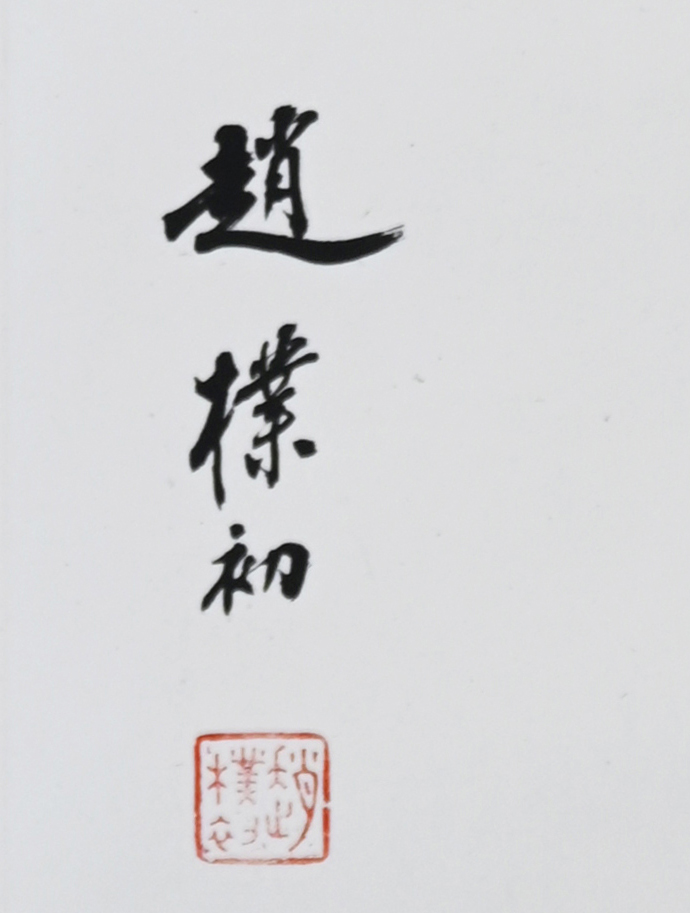 趙
樸
初
趙樸初